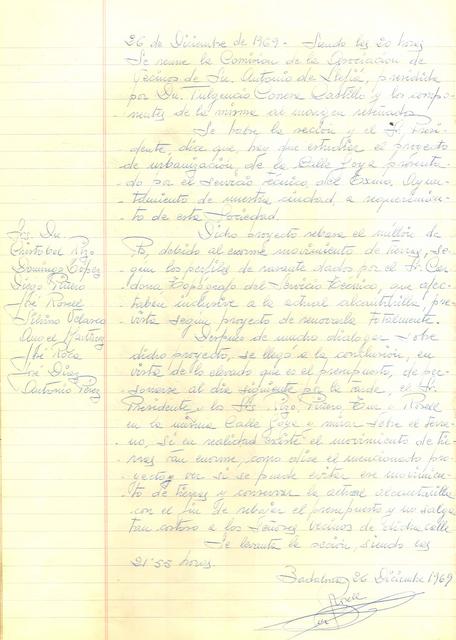 26 de Diciembre de 1969 - Siendo las 20 horas
Se reune la Comision de la Asociacion de
Vecinos de Sn. Antonio de Llefiá, presidida
por Dn. Fulgencio Conesa Castillo y los compo-
nentes de la misma al margen reseñados
Se habre la seción y el Sr. Presi-
dente, dice que, hay que estudiar el proyecto
de urbanización, de la Calle Goya presenta-
do por el Servicio Técnico, del Exmo. Ayun-
tamiento de nuestra ciudad, a requerimien-
to de esta Sociedad.
Dicho proyecto rebasa el millón de
Pts, debido al enorme movimiento de tierras, se-
gun los perfiles de rasante dados por el Sr. Car-
dona Topógrafo del Servicio Técnico, que afec-
taban inclusive a la actual alcantarilla, pre-
vista según proyecto de renovarla totalmente.
Despues de mucho dialogar sobre
dicho proyecto, se llegó a la conclusión, en
vista de lo elevado que es el presupuesto, de per-
sonarse al dia siguiente por la tarde, el Sr.
Presidente y los Srs. Rizo, Piñero, y Rosell
en la misma Calle Goya y mirar sobre el terre-
no, si en realidad existe el movimiento de tie-
rras tan enorme, como dice el mencionado pro-
yecto y ver si se puede evitar ese movimien-
to de tierras y conservar la actual alcantarilla
con el fin de rebajar el presupuesto y no salga
tan costoso a los Señores vecinos de dicha calle
Se levanta la seción, siendo las
21'55 horas.
Badalona 26 Diciembre 1969
Srs. Dn.
Cristobal Rizo
Domingo López
Diego Piñero
José Rosell
Angel Martinez
José Roca
José Diaz
Antonio Pérez